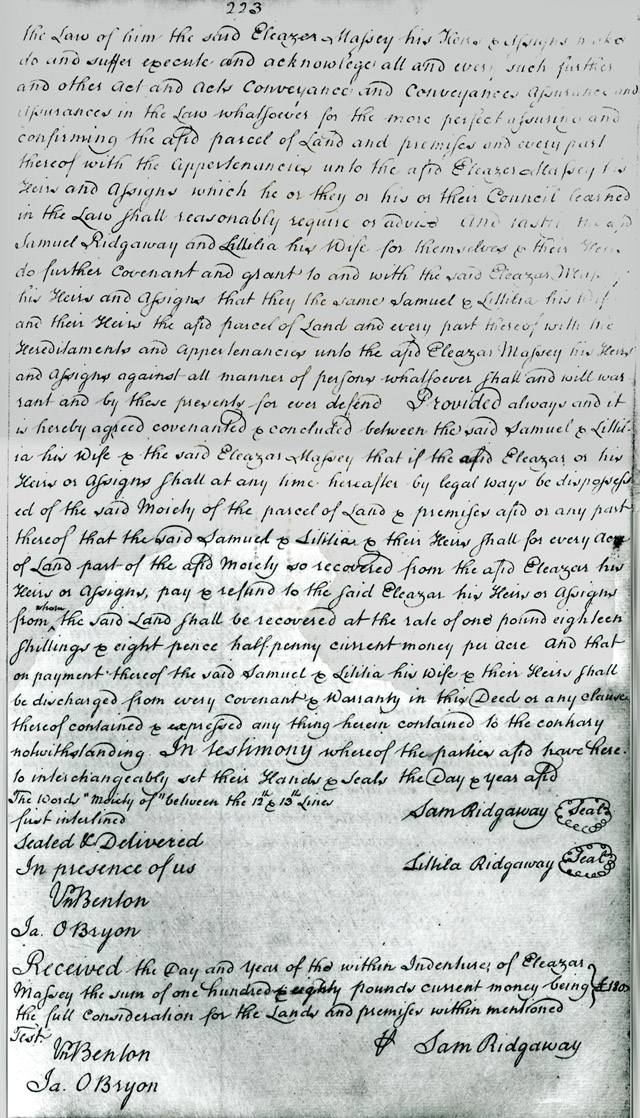 223
the Law of him the said Eleazar Massey his Heirs & Assigns make
do and suffer execute and acknowlege all and every such further
and other Act and Acts Conveyance and Conveyances Assurance and
Assurances in the Law whatsoever for the more perfect assuring and
confirming the afsd parcel of Land and premises and every part
thereof with the Appertenancies unto the afsd Eleazer Massey his
Heirs and Assigns which he or they or his or their Council learned
in the Law shall reasonably require or advise And lastly the afsd
Samuel Ridgaway and Littilia his Wife for themselves & their Heirs
do further Covenant and grant to and with the said Eleazar Massey
his Heirs and Assigns that they the same Samuel & Littilia his Wife
and their Heirs the afsd parcel of Land and every part thereof with the
Hereditaments and Appertenancies unto the afsd Eleazar Massey his Heirs
and Assigns against all manner of persons whatsoever shall and will war
rant and by these presents for ever defend Provided always and it
is hereby agreed covenanted & concluded between the said Samuel & Litti
lia his Wife & the said Eleazar Massey that if the afsd Eleazar or his
Heirs or Assigns shall at any time hereafter by legal ways be dispossess
ed of the said Moiety of the parcel of Land & premises afsd or any part
thereof that the said Samuel & Litilia & their Heirs shall for every Acre
of Land part of the afsd Moiety so recovered from the afsd Eleazar his
Heirs or Assigns, pay & refund to the said Eleazar his Heirs or Assigns
from whom the said Land shall be recovered at the rate of one pound eighteen
shillings & eight pence half penny current money per Acre And that
on payment thereof the said Samuel & Litilia his Wife & their Heirs shall
be discharged from every covenant & Warranty in this Deed or any clause
thereof contained & expressed any thing herein contained to the contrary
notwithstanding. In testimony whereof the parties afsd have here
to interchangeably set their Hands & Seals the Day & year afsd
The Words "Moiety of" between the 12th & 13th Lines
first interlined
Sam Ridgaway Seal
Sealed & Delivered
In presence of us
Littila Ridgaway Seal
Vn Benton
Ja. OBryon
Received the Day and Year of the within Indenture; of Eleazar
Massey the sum of one hundred & eighty pounds current money being £180
the full Consideration for the Lands and premises within mentioned
Test.
Vn Benton
Sam Ridgaway
Ja. OBryon